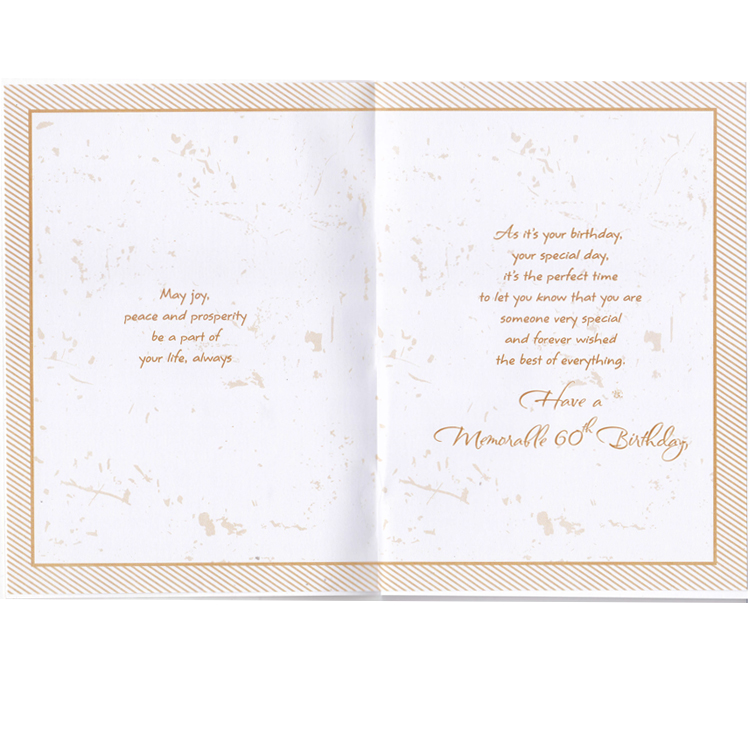 May joy,
peace and prosperity
be a part of
your life, always
As it's your birthday,
your special day,
it's the perfect time
to let you know that you are
someone very special
and forever wished
the best of everything.
Have a
Memorable 60th Birthday,